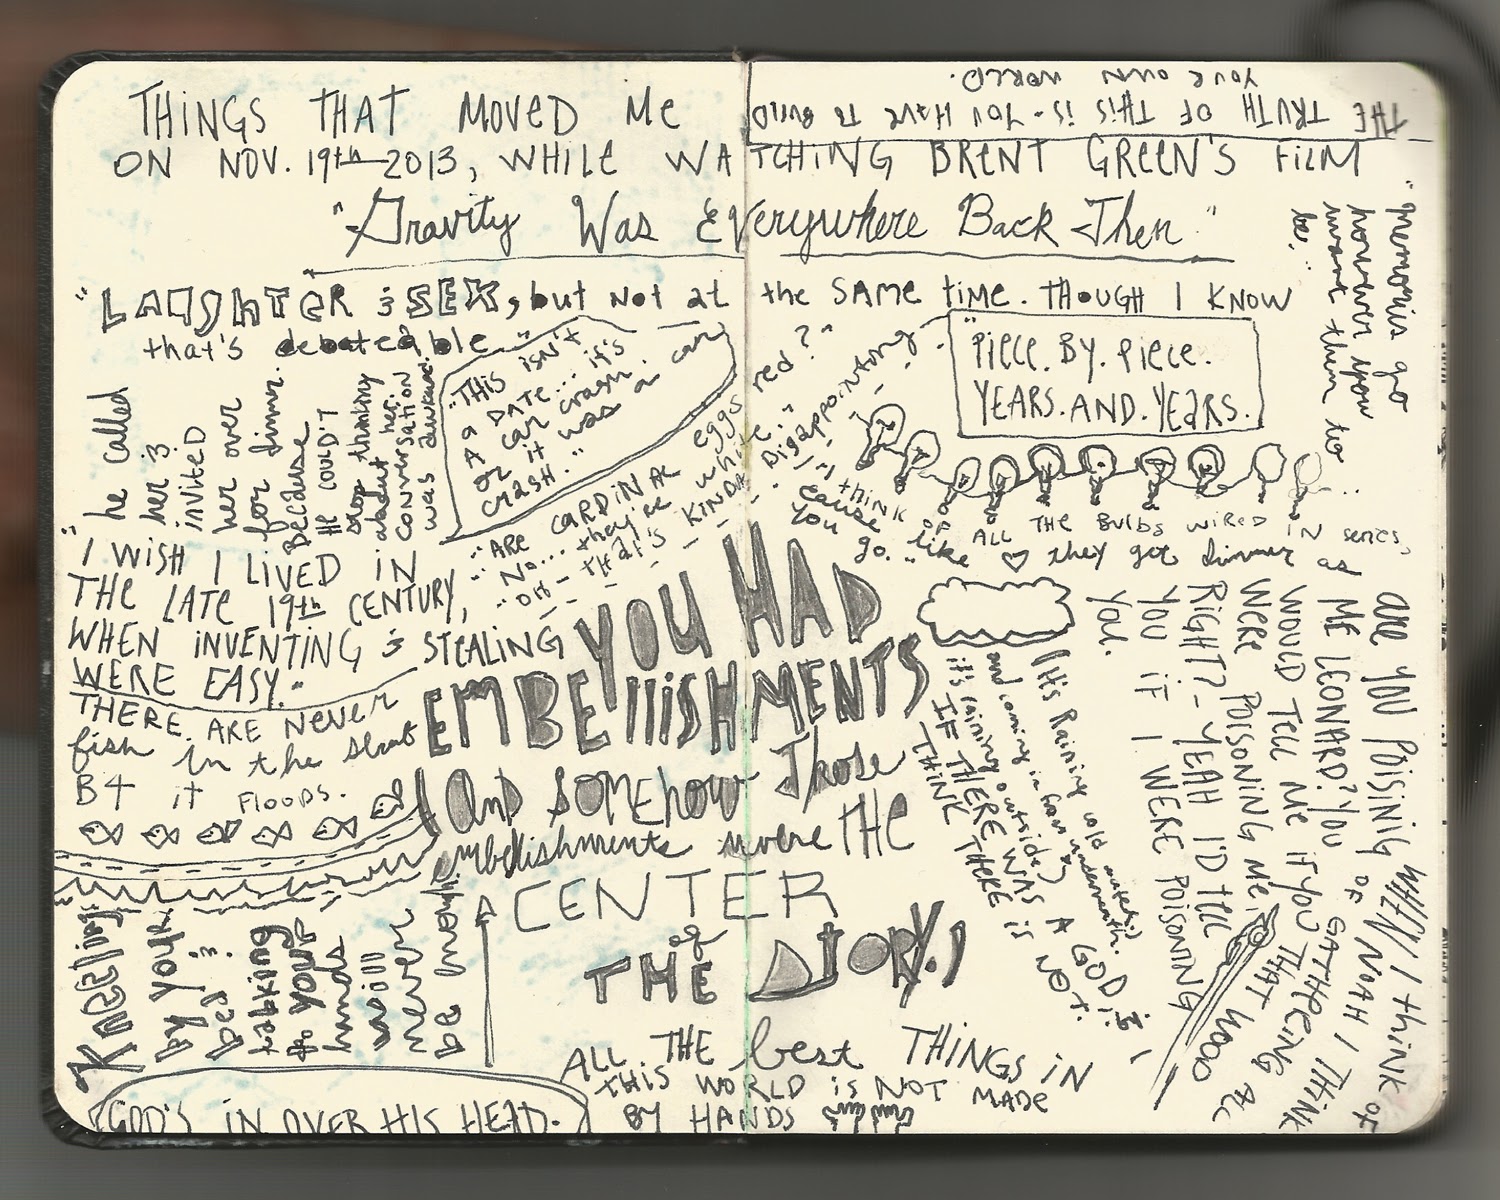 THINGS THAT MOVED Me
ON NOV. 19th 2013, WHILE WATCHING BRENT GREEN'S FILM
"Gravity Was Everywhere Back Then"
THE TRUTH OF THIS IS - YOU HAVE TO BUILD
YOUR OWN WORLD.
"LAUGHTER & SEX, but not at the SAME time. THOUGH I KNOW
that's debateable"
"memories go
however you
want them to
be."
"THIS isn't
a DATE... it's
A car crash.
or it was a car
crash."
"PiECE. BY. PiECE.
YEARS. AND. YEARS.
he called
her &
invited
her over
for dinner.
Because
He could't
stop thinking
about her.
conversation
was awkward.
"ARE CARDINAL eggs red?"
"No... they're white."
"OH - that's KINDA Disappointing."
"I think of all THE Bulbs wired IN series,
cause like they got dimmer as
you go."
"I WISH I LIVED IN
THE LATE 19th CENTURY,
WHEN INVENTING & STEALING
WERE EASY."
THERE ARE Never
fish in the street
B4 it FLOODS.
YOU HAD
EMBEllISHMENTS
And SOMEhow Those
embellishments were THE
CENTER
of
THE STORY.
(it's Raining cold water.)
and coming in from underneath.
it's raining outside)
IF THERE WAS A GOD &
I THINK THERE IS NOT.
are you POISINIG
ME LEONARD? YOU
WOULD TELL ME if YOU
WERE POISONING ME
RIGHT? - YEAH I'D TELL
YOU iF I WERE POISONING
YOU.
WHEN I think OF
NOAH I THINK
OF GATHERING ALL
THAT WOOD
Kneeling
by your
bed &
talking
to your
hands
will
never
be enough.
GOD'S IN OVER HIS HEAD.
ALL THE best THINGS iN
THIS WORLD iS NOT MADE
BY HANDS